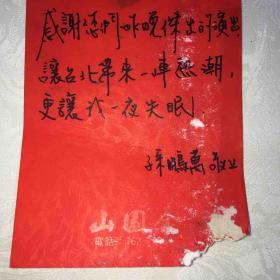 感謝您們昨晚傑出的演出
讓台北帶來一陣熱潮，
更讓我一夜失眠！
孫鵬萬 敬上
山園
電話